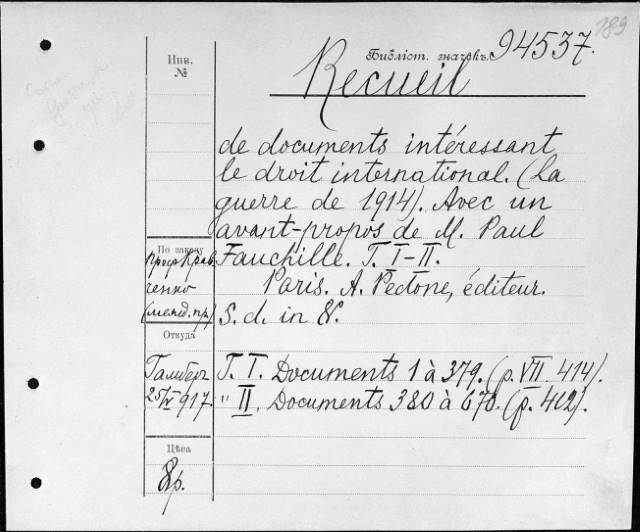 189
Инв.
№
Библіот. значокъ. 94537.
Recueil
de documents intéressant
le droit international. (La
guerre de 1914). Avec un
avant-propos de M. Paul
Fauchille. T. I-II.
Paris. A. Pedone, éditeur.
S. d. in 8º.
По заказу
Проф Крав
ченко
(межд. пр.)
Откуда
T. I. Documents 1 à 379. (p. VII, 414).
" II. Documents 380 à 670. (p. 402).
25/IV 917.
Цѣна
8р.